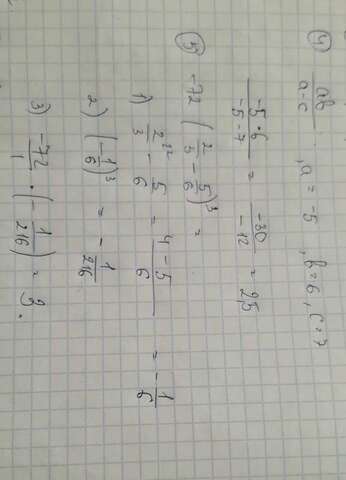 4) ab/a-c , a = -5 , b=6 , c=7
-5·6/-5-7 = -30/-12 = 2,5
5) -72 (2/3 - 5/6)³ =
1) 2/3 ² - 5/6 = 4-5/6 = -1/6
2) (-1/6)³ = -1/216
3) -72/1 · (-1/216) = 3.